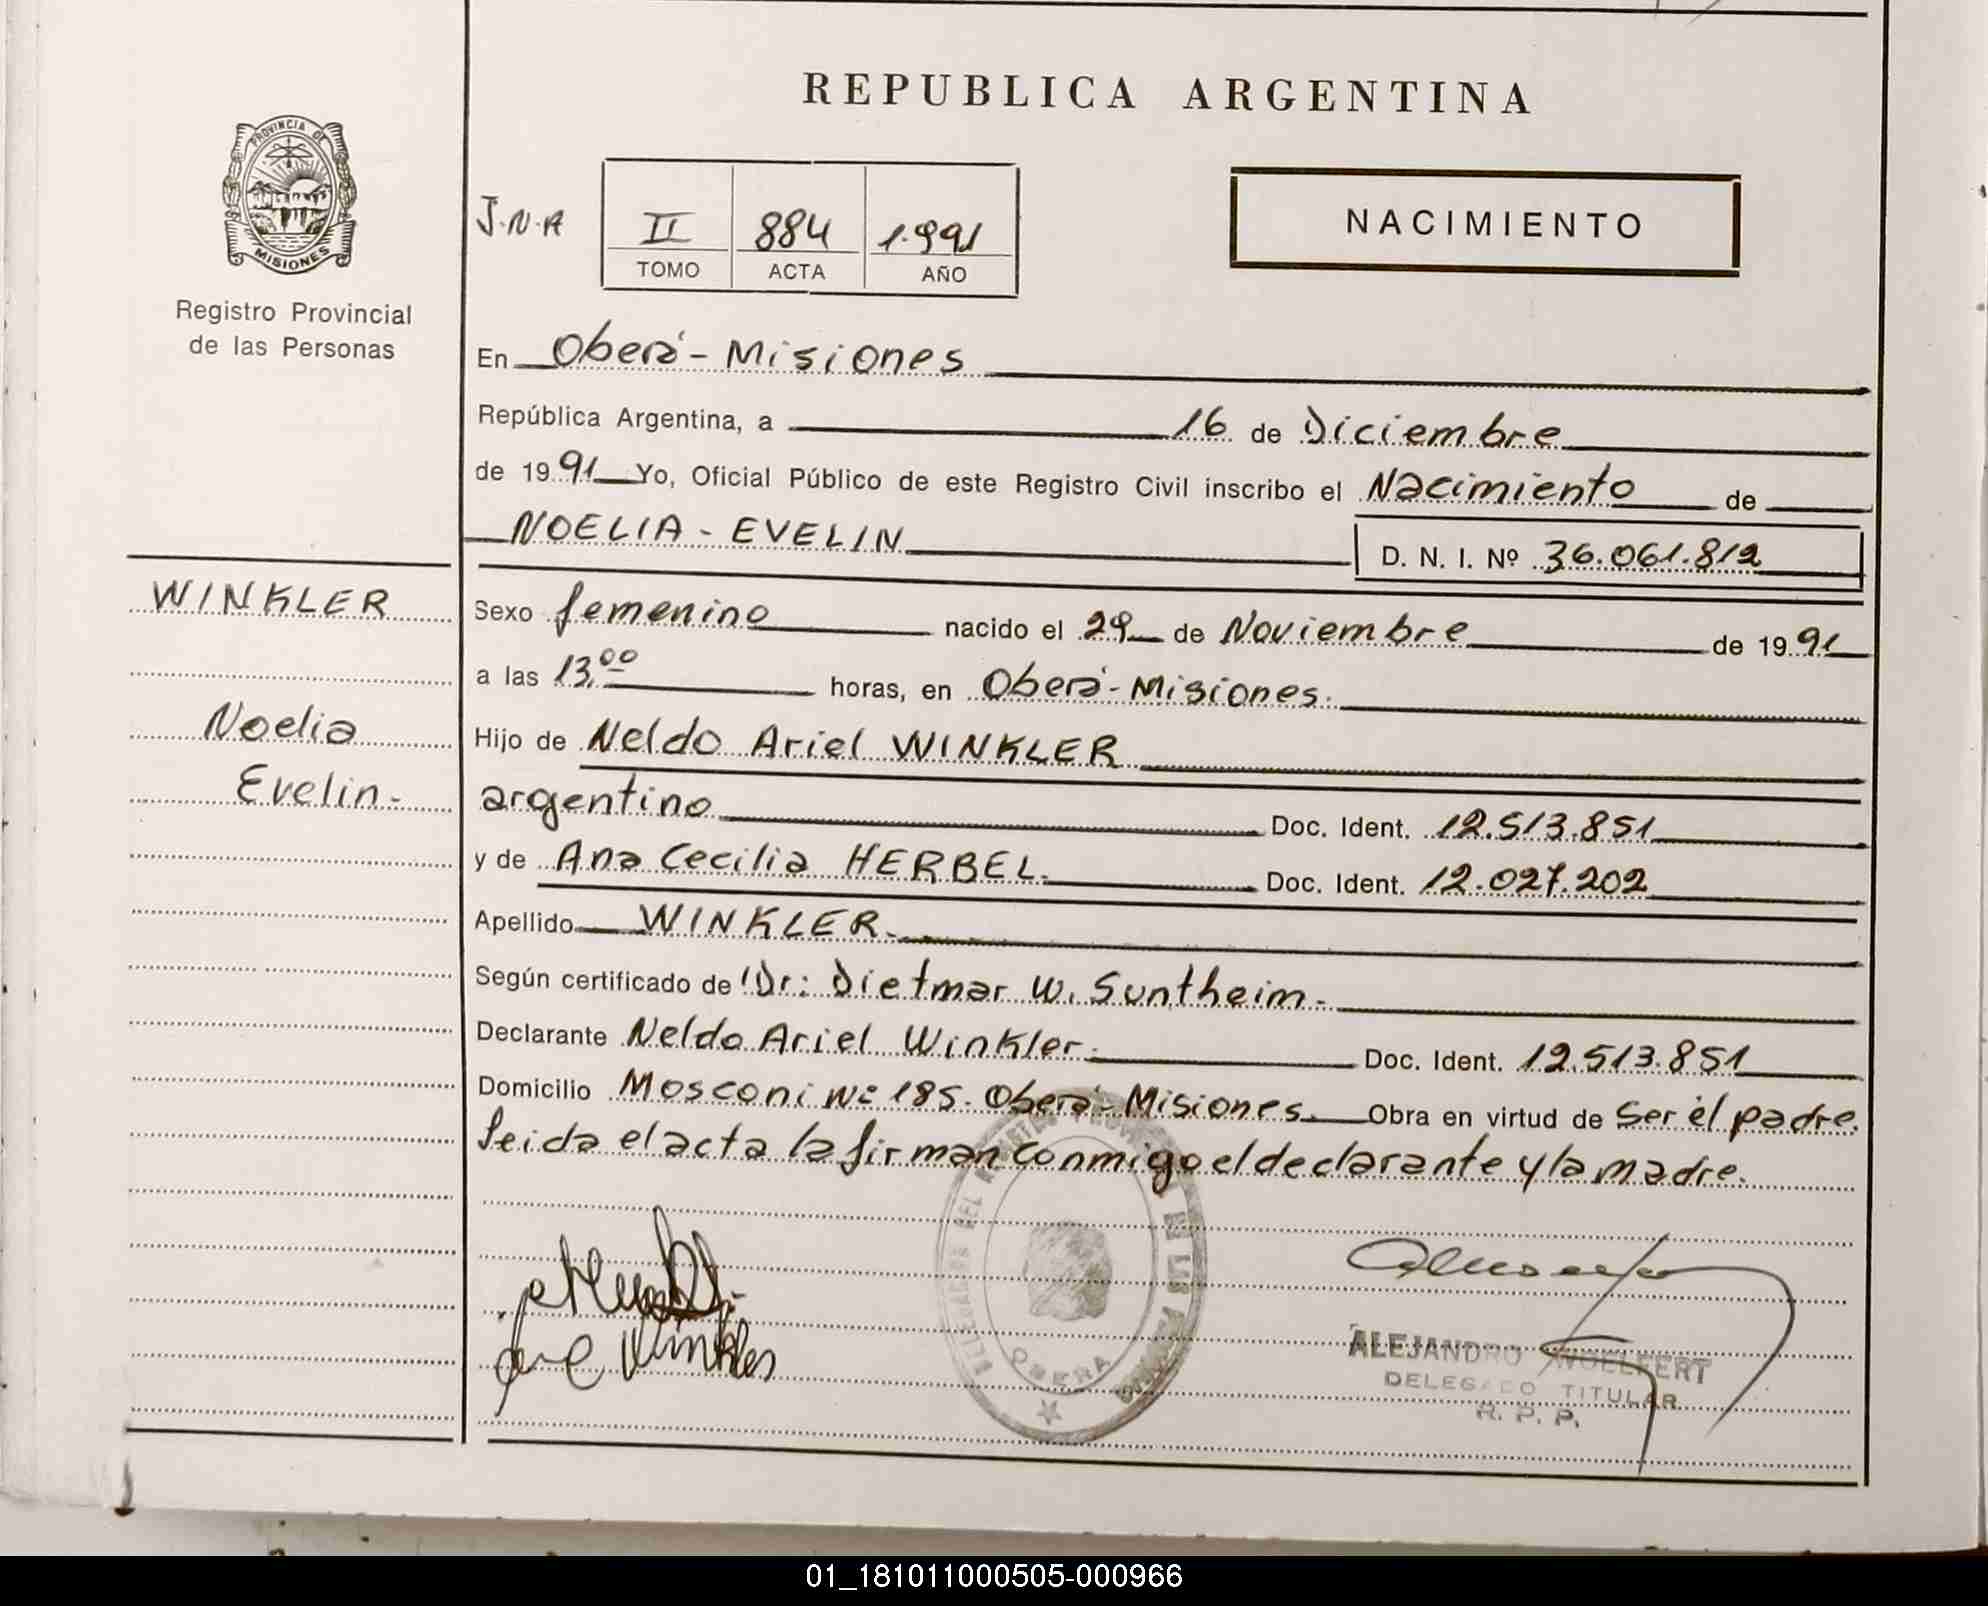 REPUBLICA ARGENTINA
PROVINCIA DE
MISIONES
Registro Provincial
de las Personas
J.N.A
II 884 1.991
TOMO ACTA AÑO
NACIMIENTO
En Oberá - Misiones
República Argentina, a 16 de Diciembre
de 1991 Yo, Oficial Público de este Registro Civil inscribo el Nacimiento de
NOELIA - EVELIN D. N. I. Nº 36.061.812
WINKLER
Noelia
Evelin.-
Sexo femenino nacido el 29 de Noviembre de 1991
a las 13,00 horas, en Oberá - Misiones.
Hijo de Neldo Ariel WINKLER
argentino Doc. Ident. 12.513.851
y de Ana Cecilia HERBEL. Doc. Ident. 12.027.202
Apellido WINKLER.
Según certificado de Dr: Dietmar W. Suntheim.
Declarante Neldo Ariel Winkler. Doc. Ident. 12.513.851
Domicilio Mosconi Nº 185. Oberá - Misiones. Obra en virtud de Ser el padre.
Leida el acta la firman conmigo el declarante y la madre.
Winkler
OBERA
ALEJANDRO WOELFERT
DELEGADO TITULAR
R. P. P.
01_181011000505-000966